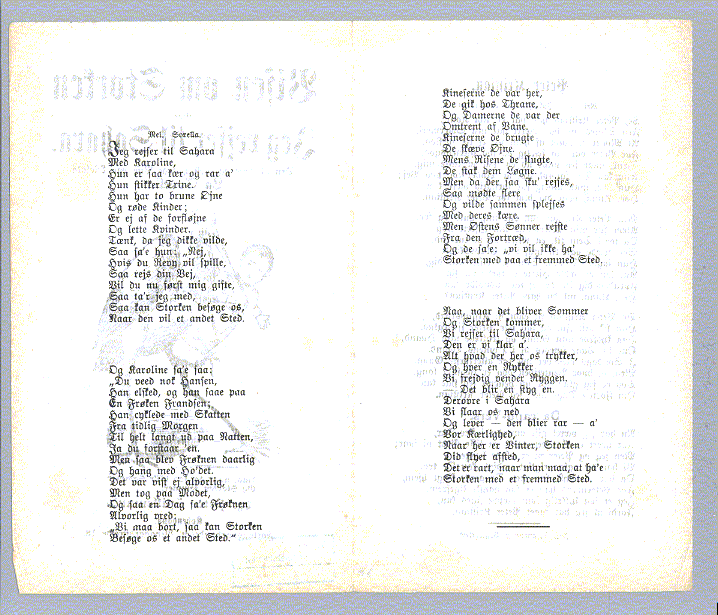 Mel. Sorella.
Jeg rejser til Sahara
Med Karoline,
Hun er saa kær og rar a'
Hun stikker Trine.
Hun har to brune Øjne
Og røde Kinder;
Er ej af de forfløjne
Og lette Kvinder.
Tænk, da jeg dikke vilde,
Saa sa'e hun: „Nej,
Hvis du Revy vil spille,
Saa rejs din Vej,
Vil du nu først mig gifte,
Saa ta'r jeg med,
Saa kan Storken besøge os,
Naar den vil et andet Sted.
Og Karoline sa'e saa:
„Du veed nok Hansen,
Han elsked, og han saae paa
En Frøken Frandsen;
Han cyklede med Skatten
Fra tidlig Morgen
Til helt langt ud paa Natten,
Ja du forstaar 'en.
Men saa blev Frøknen daarlig
Og hang med Ho'det.
Det var vist ej alvorlig,
Men tog paa Modet,
Og saa en Dag sa'e Frøknen
Alvorlig vred:
„Vi maa bort, saa kan Storken
Besøge os et andet Sted.“
Kineserne de var her,
De gik hos Thrane,
Og Damerne de var der
Omtrent af Vane.
Kineserne de brugte
De skæve Øjne.
Mens Risene de slugte,
De stak dem Løgne.
Men da der saa sku' rejses,
Saa mødte flere
Og vilde sammen splejses
Med deres kære.
Men Østens Sønner rejste
Fra den Fortræd,
Og de sa'e: „vi vil ikke ha'
Storken med paa et fremmed Sted.
Naa, naar det bliver Sommer
Og Storken kommer,
Vi rejser til Sahara,
Den er vi klar a'.
Alt hvad der her os trykker,
Og hver en Nykker
Vi frejdig vender Ryggen.
— Det blir en styg en.
Derovre i Sahara
Vi slaar os ned
Og lever — den blier rar — a'
Vor Kærlighed,
Naar her er Vinter, Storken
Did flyer afsted,
Det er rart, naar man maa, at ha'e
Storken med et fremmed Sted.